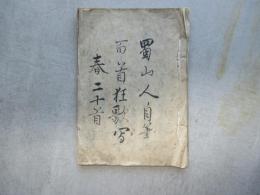 蜀山人自筆
百首狂歌写
春二十首